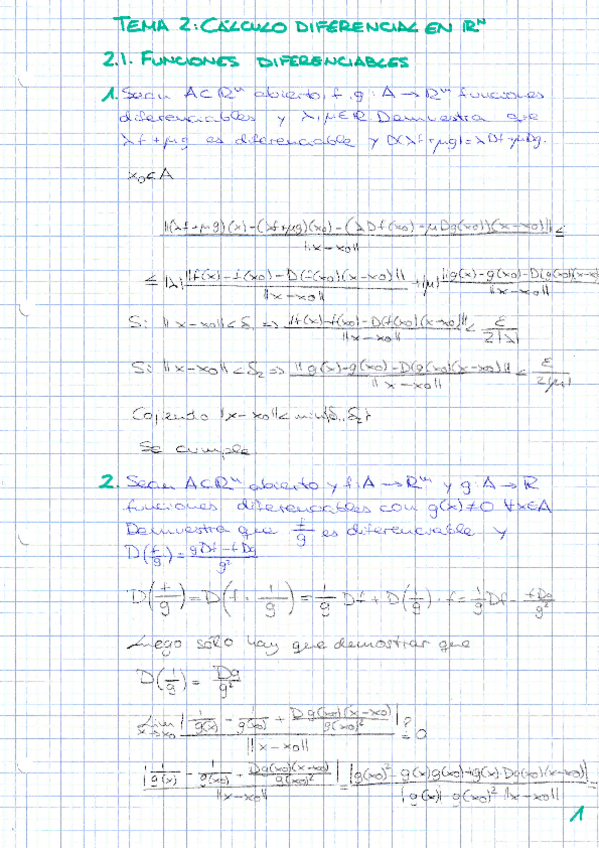 TEMA 2: CÁLCULO DIFERENCIAL EN ℝⁿ
2.1. FUNCIONES DIFERENCIABLES
1. Sean A⊂ℝⁿ abierto, f, g: A → ℝᵐ funciones
diferenciables y λ, μ∈ℝ. Demuestra que
λf + μg es diferenciable y D(λf+μg) = λDf+μDg.
x₀∈A
||(λf+μg)(x)-(λf+μg)(x₀)-(λDf(x₀)+μDg(x₀))(x-x₀)|| / ||x-x₀|| ≤
≤ |λ| ||f(x)-f(x₀)-D(f(x₀)(x-x₀)|| / ||x-x₀|| + |μ| ||g(x)-g(x₀)-D(g(x₀)(x-x₀ / ||x-x₀||
Si ||x-x₀||<δ₁ => ||f(x)-f(x₀)-D(f(x₀)(x-x₀)|| / ||x-x₀|| < ε / 2|λ|
Si ||x-x₀||<δ₂ => ||g(x)-g(x₀)-D(g(x₀)(x-x₀)|| / ||x-x₀|| < ε / 2|μ|
Cogiendo ||x-x₀||< min{δ₁, δ₂}
Se cumple.
2. Sean A⊂ℝⁿ abierto y f: A → ℝᵐ y g: A → ℝ
funciones diferenciables con g(x)≠0 ∀x∈A
Demuestra que f/g es diferenciable y
D(f/g) = gDf-fDg / g²
D(f/g) = D(f · 1/g) = 1/g Df + D(1/g) · f = 1/g Df - fDg/g²
Luego sólo hay que demostrar que
D(1/g) = Dg/g²
lim x→x₀ |1/g(x) - 1/g(x₀) + Dg(x₀)(x-x₀)/g(x₀)²| / ||x-x₀|| ?= 0
|1/g(x) - 1/g(x₀) - Dg(x₀)(x-x₀)/g(x₀)²| / ||x-x₀|| = |g(x₀)² - g(x)g(x₀)+g(x)·Dg(x₀)(x-x₀)| / |g(x)| g(x₀)² ||x-x₀|| =
1